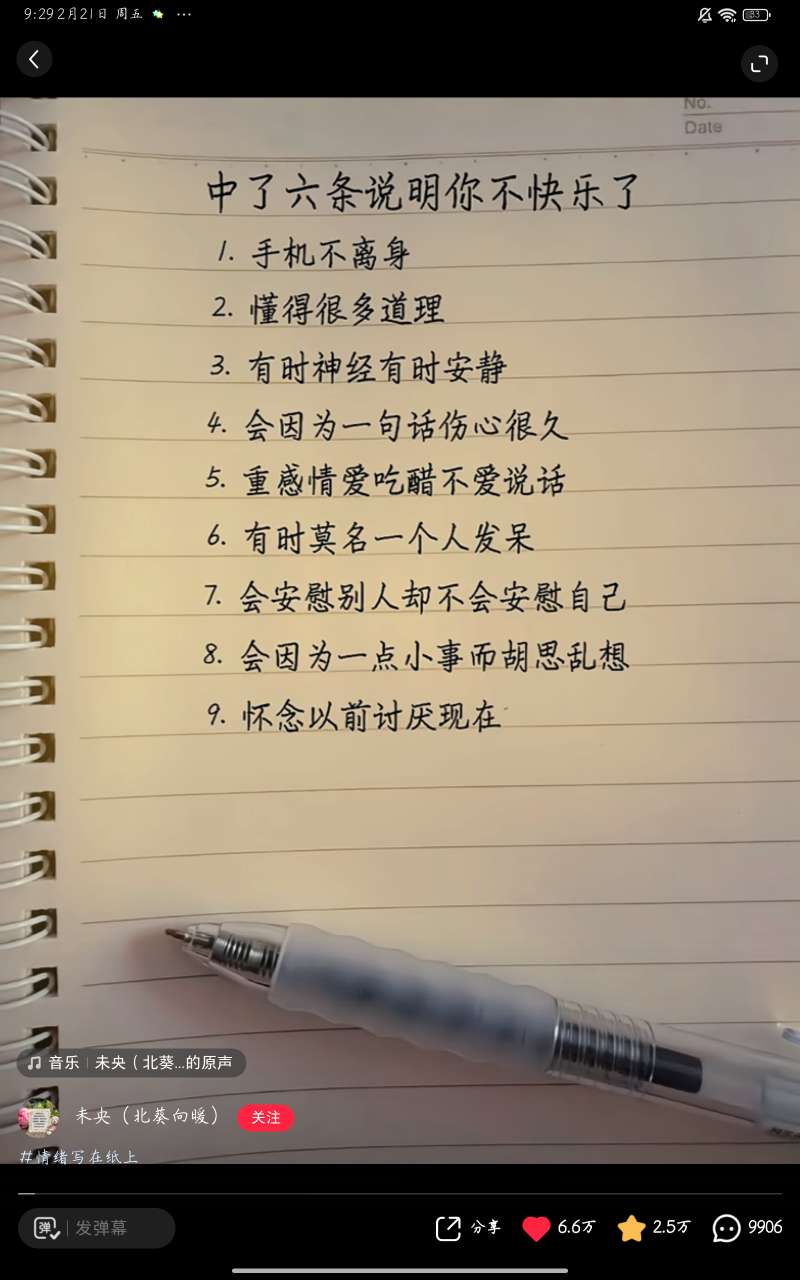 9:29 2月21日 周五 ···
83
No.
Date
中了六条说明你不快乐了
1. 手机不离身
2. 懂得很多道理
3. 有时神经有时安静
4. 会因为一句话伤心很久
5. 重感情爱吃醋不爱说话
6. 有时莫名一个人发呆
7. 会安慰别人却不会安慰自己
8. 会因为一点小事而胡思乱想
9. 怀念以前讨厌现在
音乐 | 未央（北葵...的原声
未央（北葵向暖） 关注
#情绪写在纸上
弹 | 发弹幕 分享 6.6万 2.5万 9906